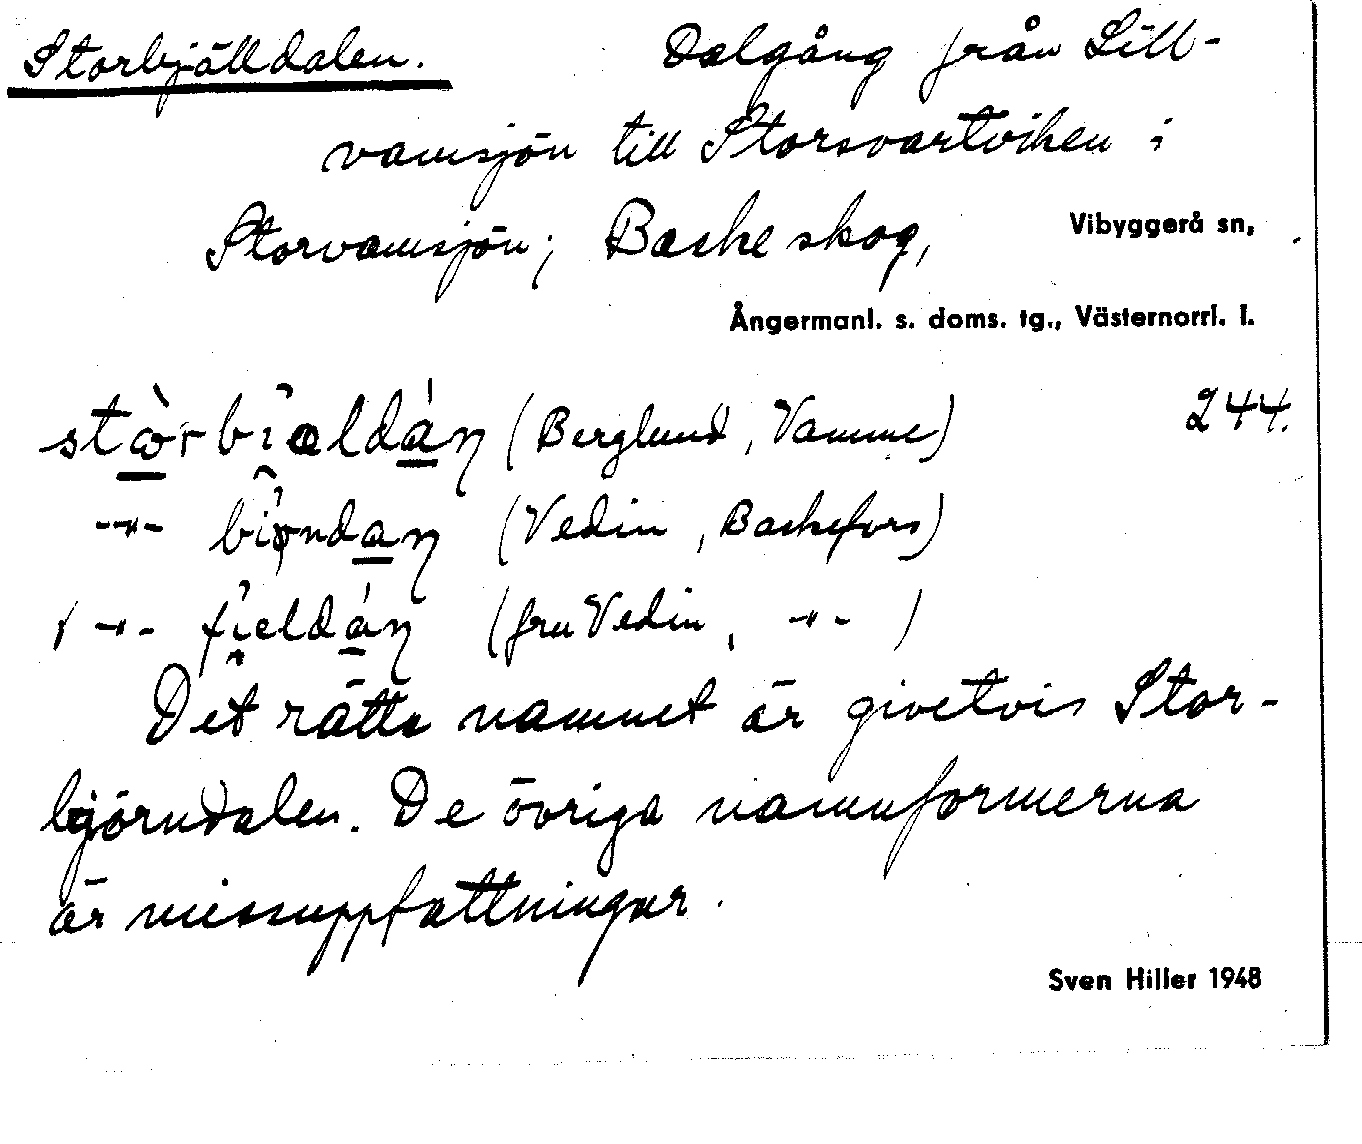 Storbjälldalen. Dalgång från Lill-
vamsjön till Storsvartviken i
Storvamsjön; Baske skog, Vibyggerå sn,
Ångermanl. s. doms. tg., Västernorrl. l.
stòrbi̯ældáṇ (Berglund, Vamme) 244.
-"- bi̯ɵndaṇ (Vedin, Baskefors)
/ -"- fi̯eldáṇ (fru Vedin, -"- )
Det rätta namnet är givetvis Stor-
björndalen. De övriga namnformerna
är missuppfattningar.
Sven Hiller 1948